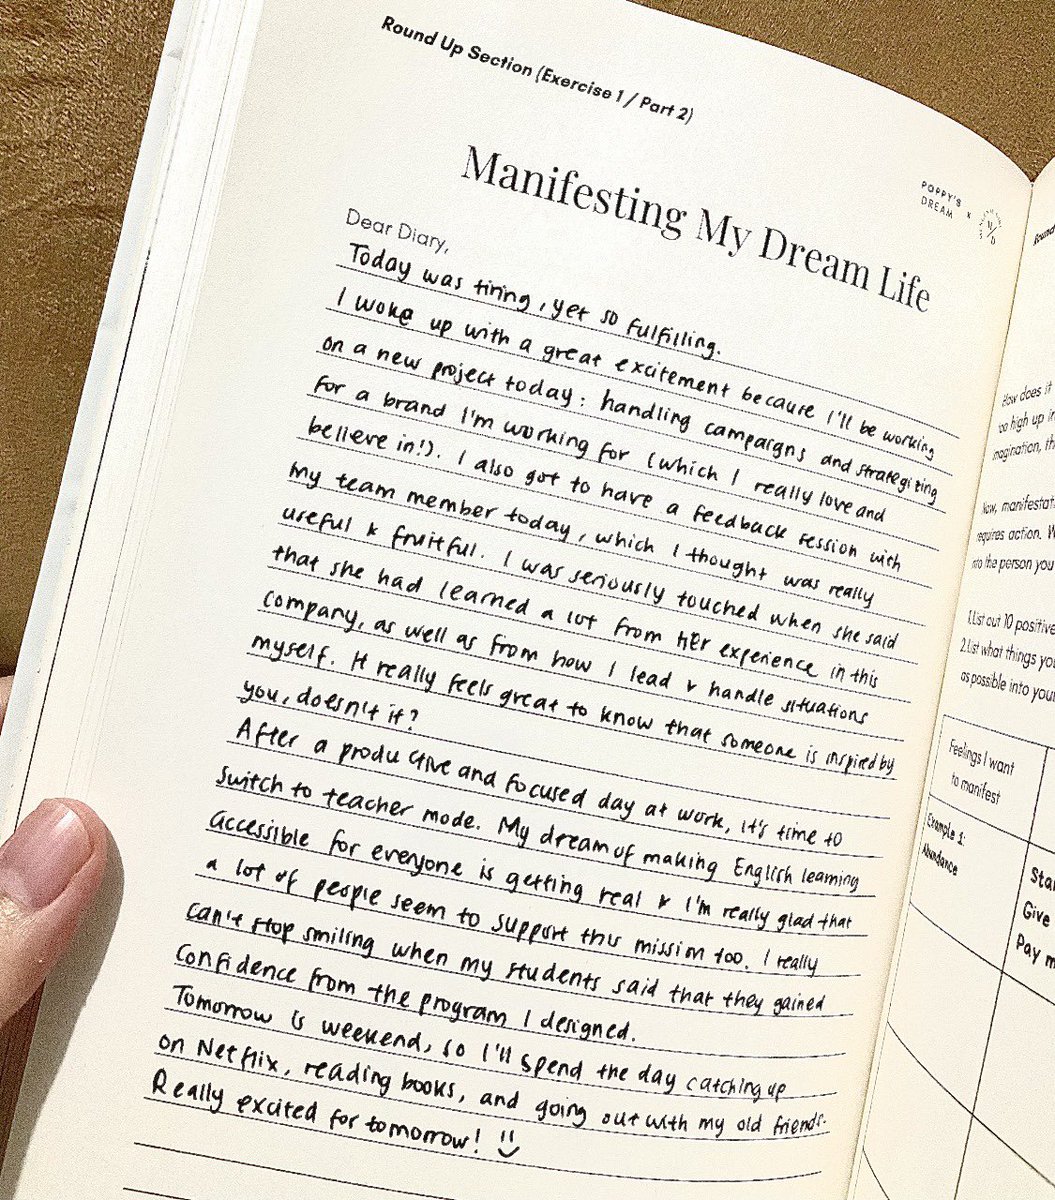 Round Up Section (Exercise 1 / Part 2)
Manifesting My Dream Life
POPPY'S
DREAM
×
Dear Diary,
Today was tiring, yet so fulfilling.
I woke up with a great excitement because I'll be working
on a new project today: handling campaigns and strategizing
for a brand I'm working for (which I really love and
believe in!). I also got to have a feedback session with
my team member today, which I thought was really
useful & fruitful. I was seriously touched when she said
that she had learned a lot from her experience in this
company, as well as from how I lead & handle situations
myself. It really feels great to know that someone is inspired by
you, doesn't it?
After a productive and focused day at work, it's time to
switch to teacher mode. My dream of making English learning
accessible for everyone is getting real & I'm really glad that
a lot of people seem to support this mission too. I really
can't stop smiling when my students said that they gained
confidence from the program I designed.
Tomorrow is weekend, so I'll spend the day catching up
on Netflix, reading books, and going out with my old friends.
Really excited for tomorrow! :)
Round
How does it
too high up in
imagination, th
Now, manifestat
requires action. W
into the person you
1. List out 10 positive
2. List what things you
as possible into your
Feelings I want
to manifest
Example 1:
Abundance
Star
Give
Pay m